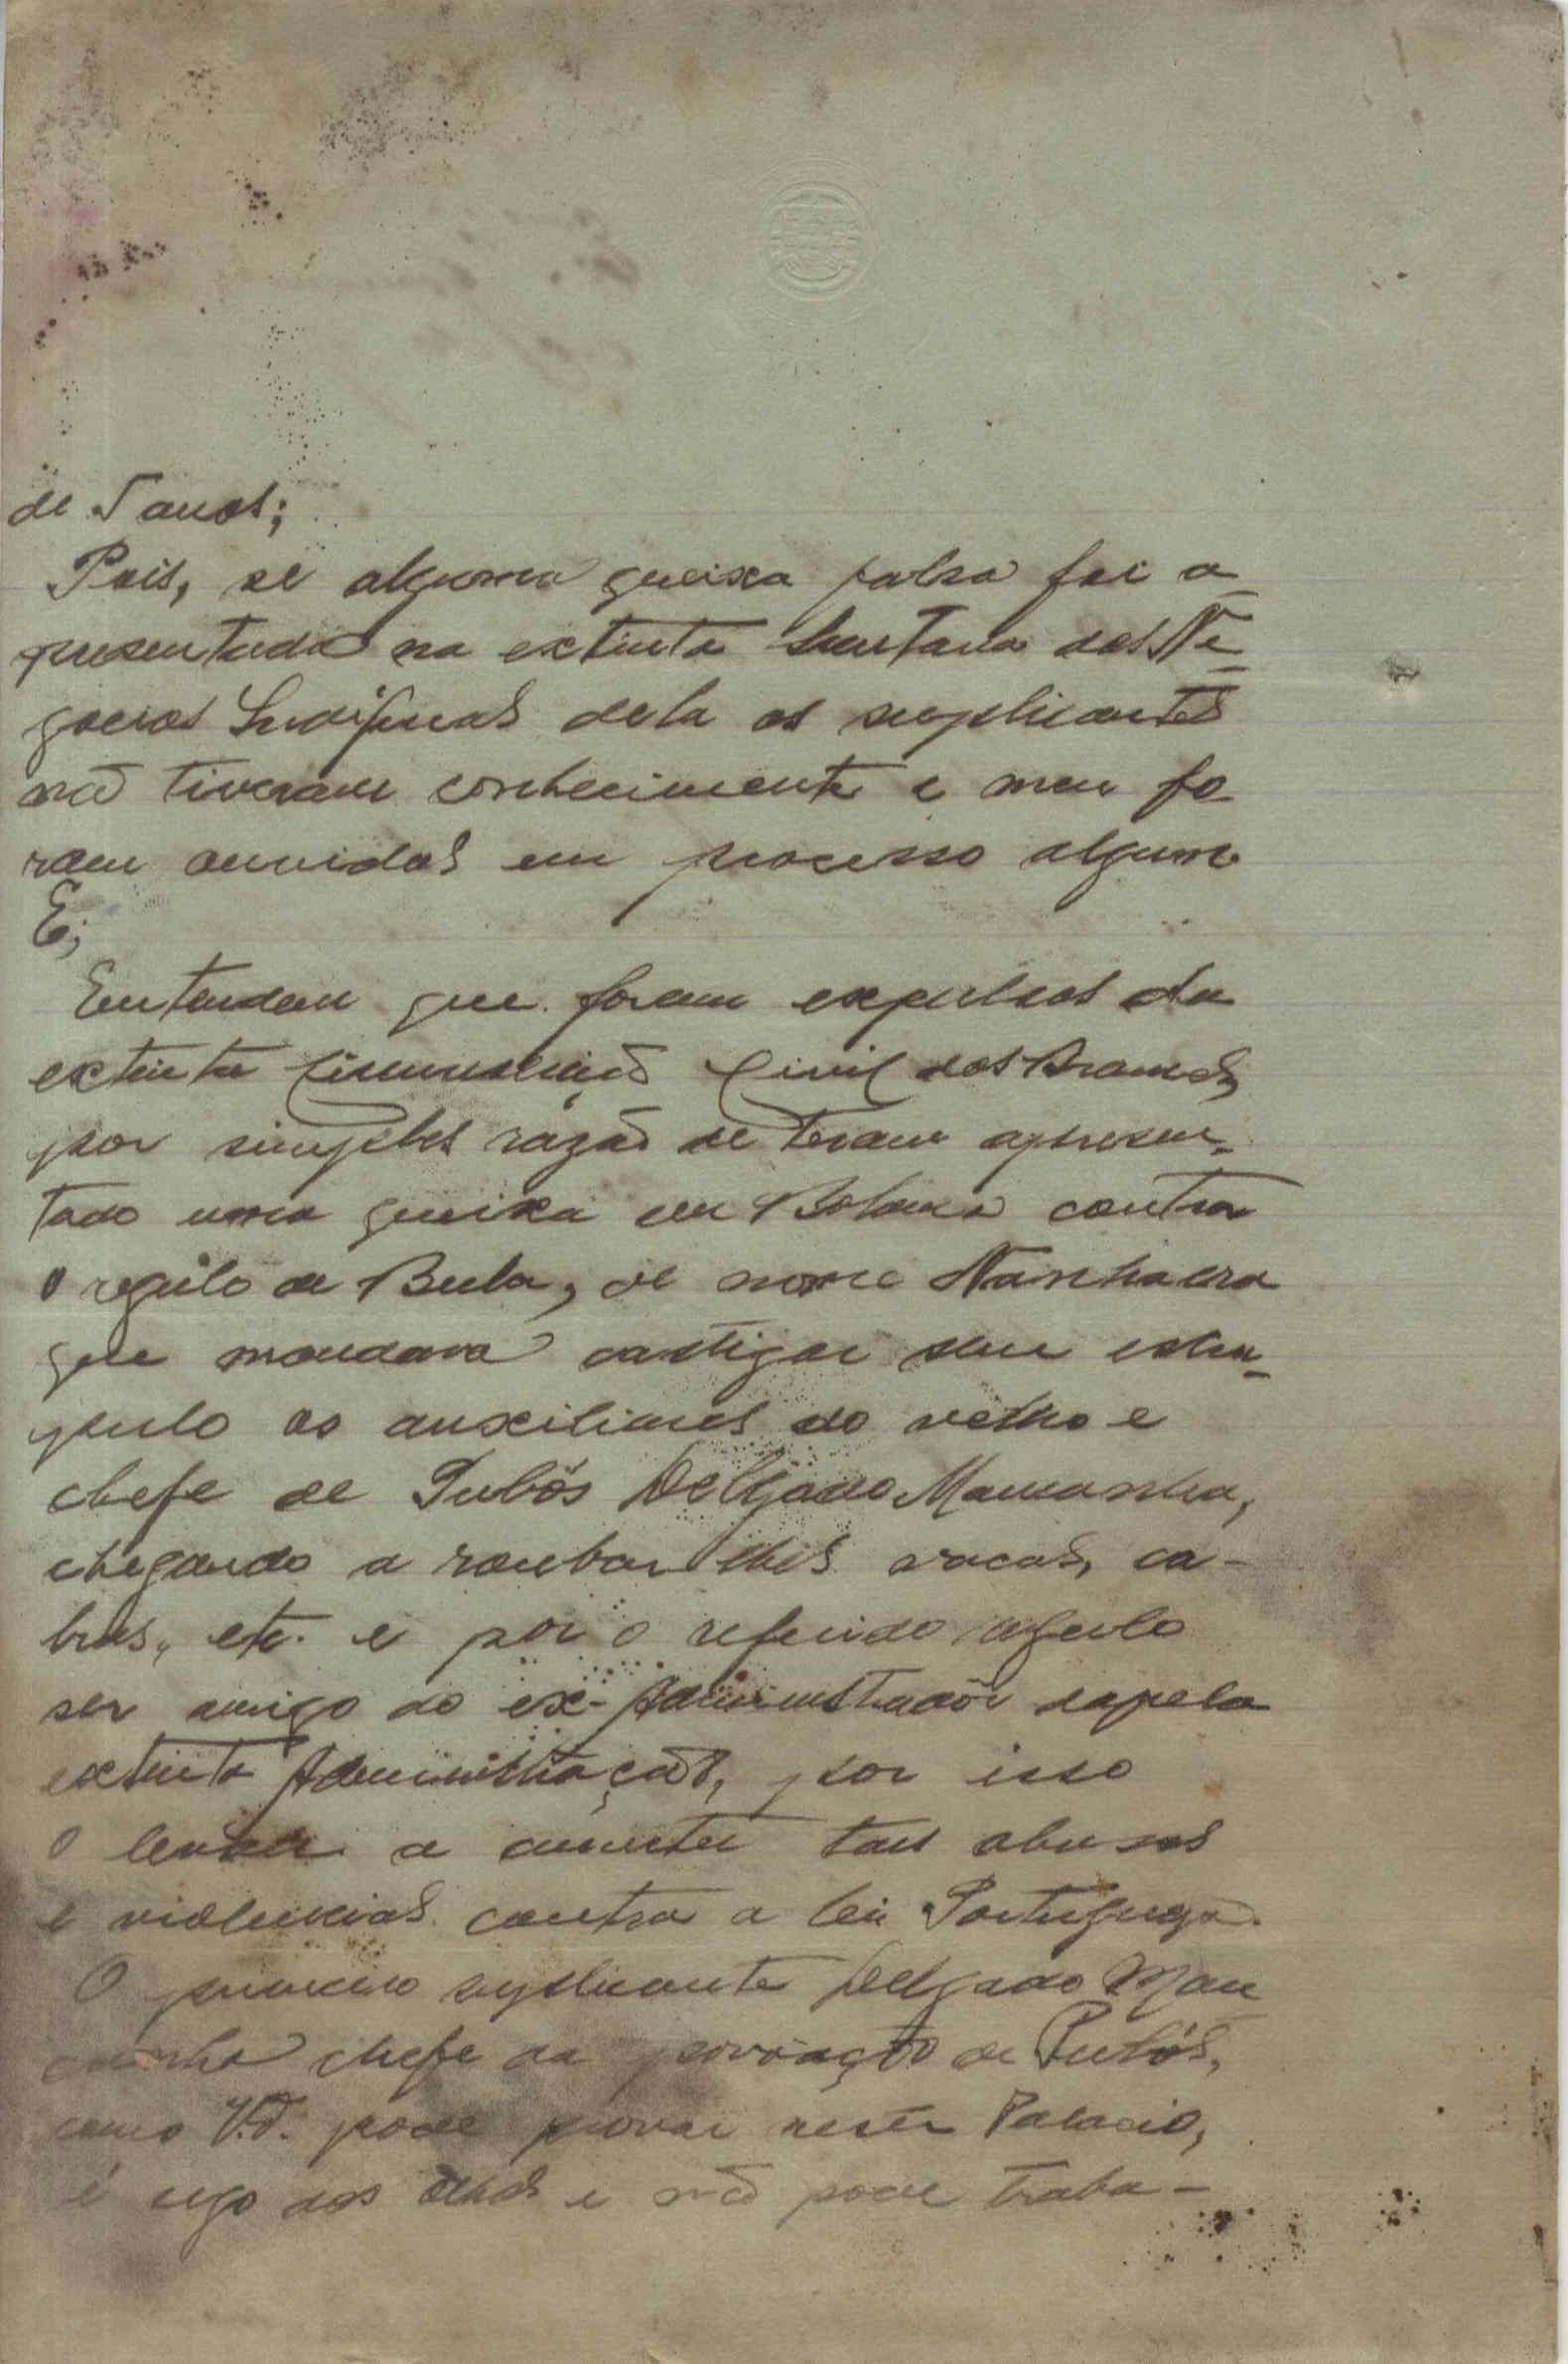 de
Pois, se alguma queixa falsa foi a-
presentada na extinta Secretaria dos Ne-
gocios Indifenas dela os suplicantes
não tiveram conhecimento e nem fo-
ram ouvidos em processo algum
E;
Entendem que foram expulsos da
extinta Circunscrição Civil dos Brames,
por simples razão de terem apresen-
tado uma queixa em Bolama contra
o regulo de Bula, de nome
que mandava castigar sem escru-
pulo os auxiliares do velho e
chefe de Pubôs Delgado Mamanha,
chegando a roubar-lhes vacas, ca-
bras, etc. e por o referido regulo
ser amigo do ex-Administradôr daquela
extinta Administração, por isso
o levou a cometer tais abusos
e violencias contra a lei Portuguesa.
O primeiro suplicante Delgado Man
chefe da povoação de Pubôs,
como V.ª. pode provar neste Palacio,
é cego dos olhos e não pode traba-